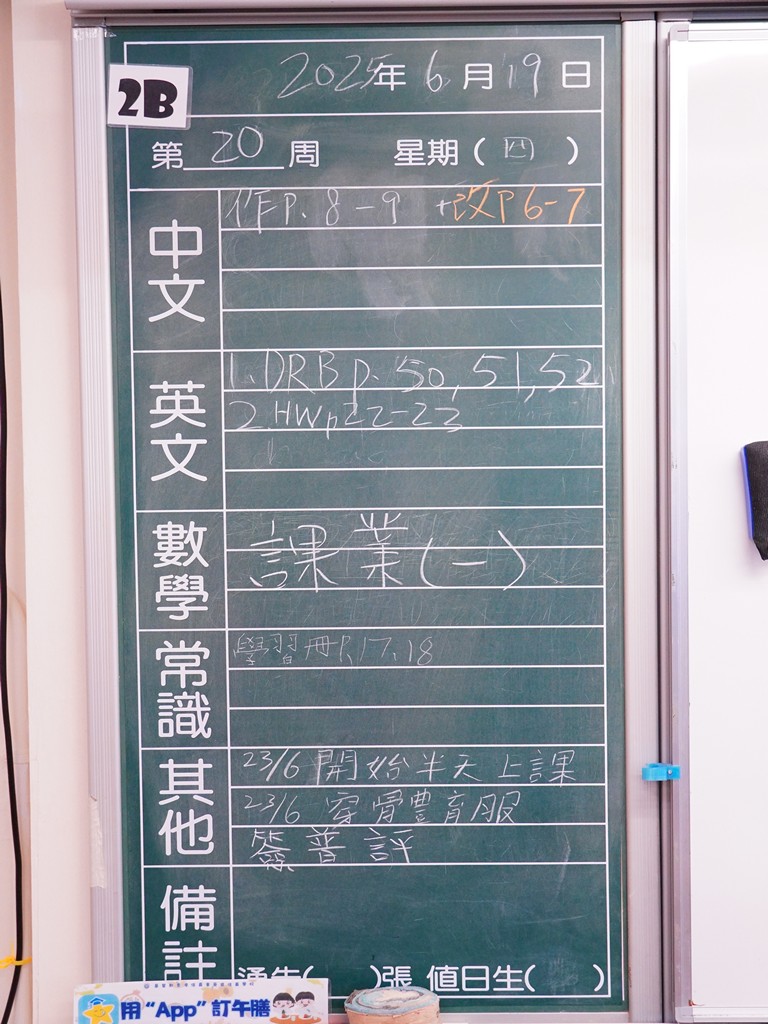 2B
2025年6月19日
第20周 星期(四)
中文
作P.8-9 +改P6-7
英文
1.DRB p.50,51,52
2.HWp22-23
數學
課業(一)
常識
學習冊P.17、18
其他
23/6 開始半天上課
23/6 穿 育服
簽普評
備註
通告( )張 值日生( )
用“App”訂午膳